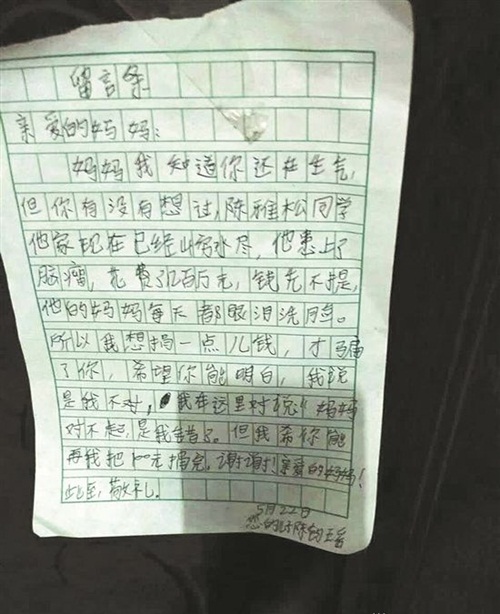 留言条
亲爱的妈妈:
妈妈我知道你还在生气,
但你有没有想过,陈雅松同学
他家现在已经山穷水尽,他患上了
脑瘤,花费了百万元,钱先不提,
他的妈妈每天都眼泪洗面。
所以我想捐一点儿钱,才骗
了你,希望你能明白,我
是我不对,我在这里对 妈妈
对不起,是我错了。但我希你能
再我把100元捐完,谢谢!亲爱的妈妈!
此至,敬礼。
5月22日
您的 陈